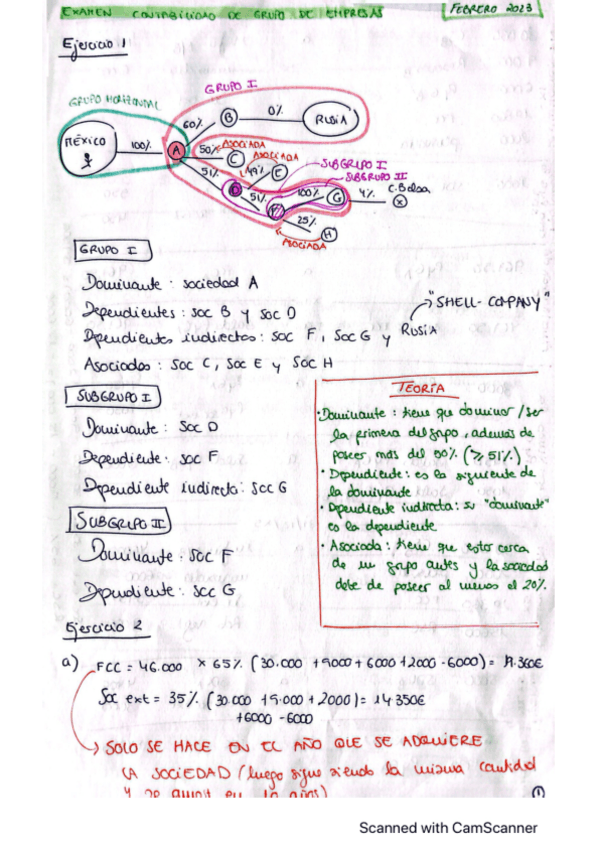 EXAMEN CONTABILIDAD DE GRUPO DE EMPRESAS
FEBRERO 2023
Ejercicio 1
GRUPO I
GRUPO HORIZONTAL
MÉXICO
100%
A
60%
B
0%
RUSIA
50%
C
ASOCIADA
51%
49%
E
ASOCIADA
D
51%
F
100%
G
SUBGRUPO I
SUBGRUPO II
4%
C. Bolsa
X
25%
H
ASOCIADA
GRUPO I
Dominante : sociedad A
Dependientes : Soc B y Soc D
Dependientes indirectos : Soc F, Soc G y Rusia
"SHELL-COMPANY"
Asociados : Soc C, Soc E y Soc H
SUBGRUPO I
Dominante : Soc D
Dependiente : Soc F
Dependiente indirecto : Soc G
SUBGRUPO II
Dominante : Soc F
Dependiente : Soc G
TEORÍA
• Dominante : tiene que dominar / ser
la primera del grupo, además de
poseer más del 50% (≥ 51%)
• Dependiente : es la siguiente de
la dominante
• Dependiente indirecta : su "dominante"
es la dependiente
• Asociada : tiene que estar cerca
de un grupo antes y la sociedad
debe de poseer al menos el 20%.
Ejercicio 2
a) FCC = 46.000 × 65% (30.000 + 9000 + 6000 + 2000 - 6000) =
Soc ext = 35% (30.000 + 9.000 + 2000) = 14.350€
+6000 - 6000
SOLO SE HACE EN EL AÑO QUE SE ADQUIERE
LA SOCIEDAD (luego sigue siendo la misma cantidad
y se amort en 10 años)
1
Scanned with CamScanner